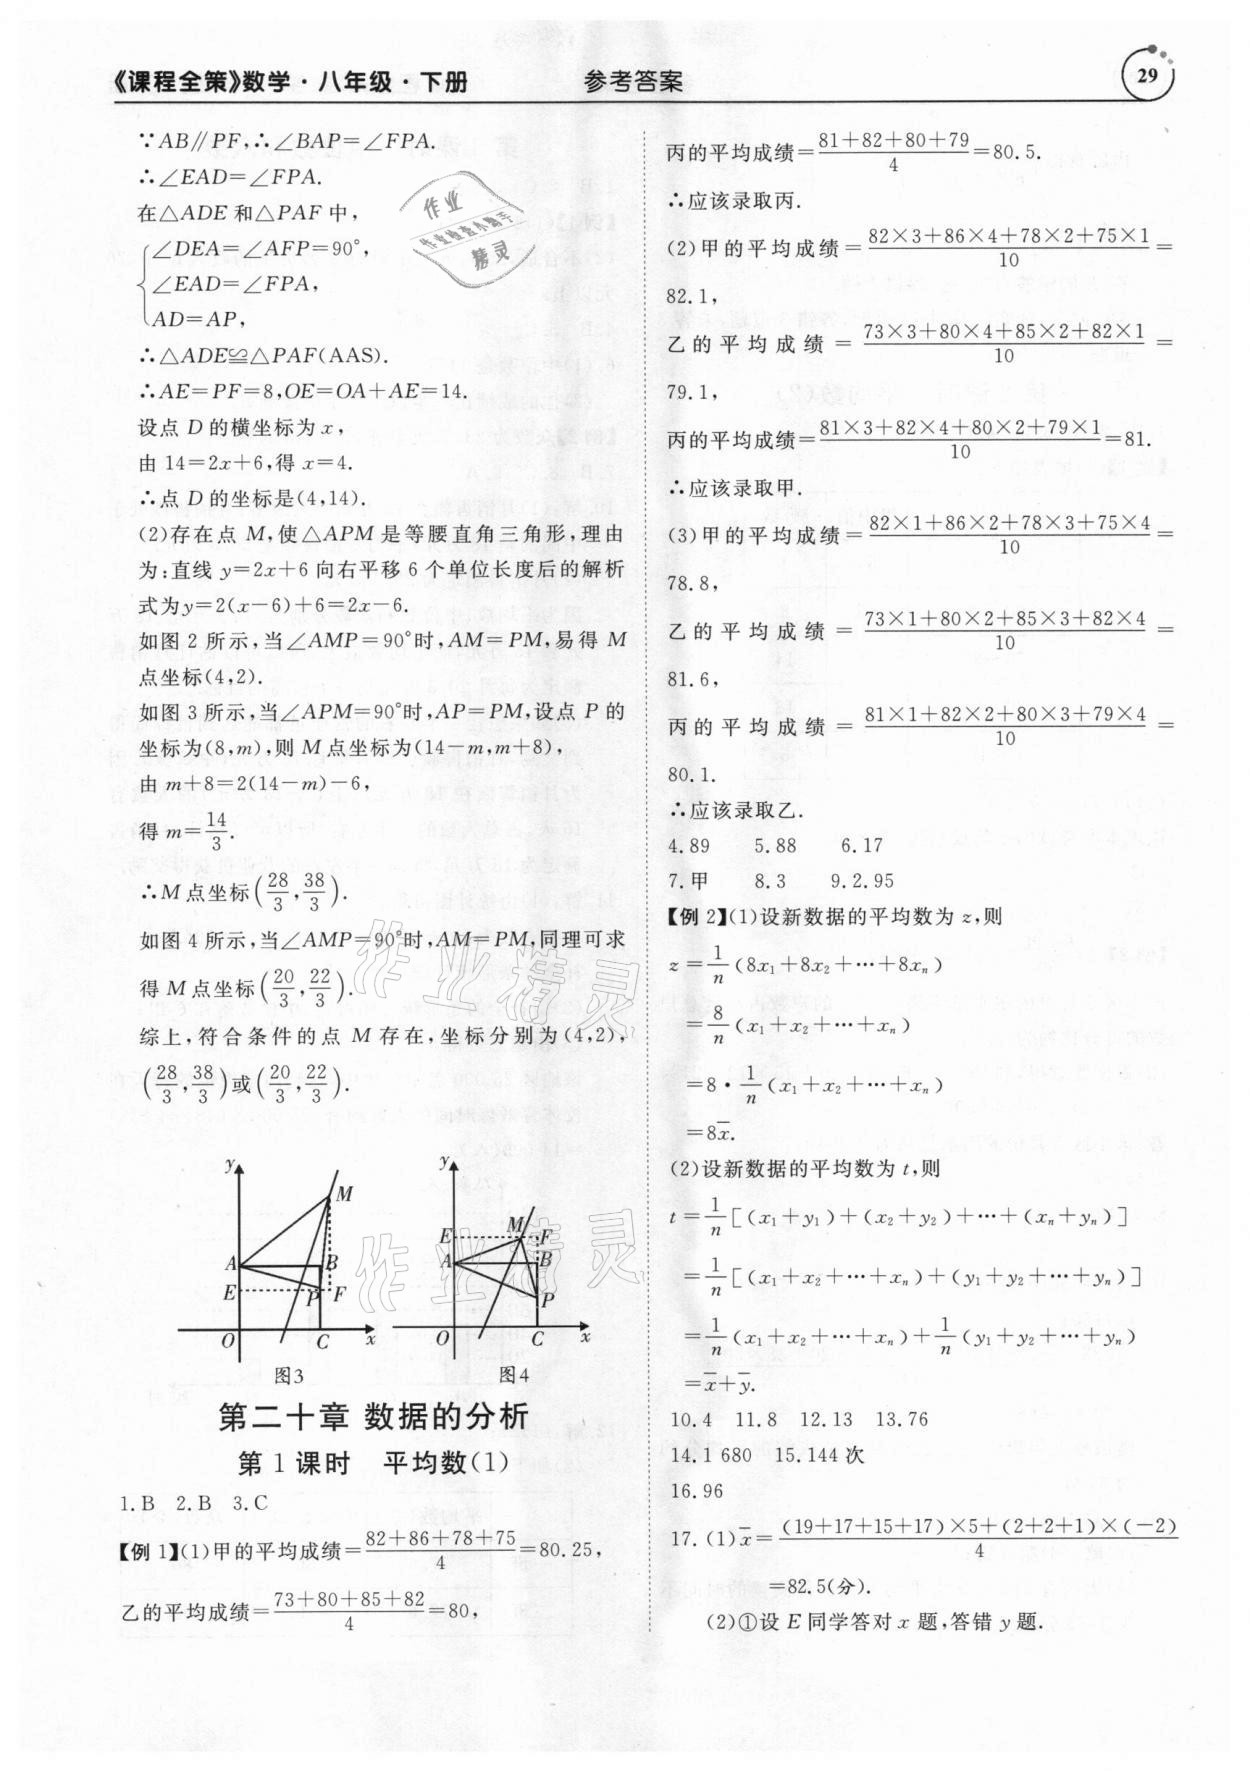 《课程全策》数学·八年级·下册
参考答案
29
∵AB∥PF,∴∠BAP=∠FPA.
∴∠EAD=∠FPA.
在△ADE和△PAF中,
∠DEA=∠AFP=90°,
∠EAD=∠FPA,
AD=AP,
∴△ADE≌△PAF(AAS).
∴AE=PF=8,OE=OA+AE=14.
设点D的横坐标为x,
由14=2x+6,得x=4.
∴点D的坐标是(4,14).
(2)存在点M,使△APM是等腰直角三角形,理由
为:直线y=2x+6向右平移6个单位长度后的解析
式为y=2(x-6)+6=2x-6.
如图2所示,当∠AMP=90°时,AM=PM,易得M
点坐标(4,2).
如图3所示,当∠APM=90°时,AP=PM,设点P的
坐标为(8,m),则M点坐标为(14-m,m+8),
由m+8=2(14-m)-6,
得m=14/3.
∴M点坐标(28/3,38/3).
如图4所示,当∠AMP=90°时,AM=PM,同理可求
得M点坐标(20/3,22/3).
综上,符合条件的点M存在,坐标分别为(4,2),
(28/3,38/3)或(20/3,22/3).
y M A B E P F O C x
图3
y E M F A B P O C x
图4
第二十章 数据的分析
第1课时 平均数(1)
1.B 2.B 3.C
【例1】(1)甲的平均成绩=(82+86+78+75)/4=80.25,
乙的平均成绩=(73+80+85+82)/4=80,
丙的平均成绩=(81+82+80+79)/4=80.5.
∴应该录取丙.
(2)甲的平均成绩=(82×3+86×4+78×2+75×1)/10=
82.1,
乙的平均成绩=(73×3+80×4+85×2+82×1)/10=
79.1,
丙的平均成绩=(81×3+82×4+80×2+79×1)/10=81.
∴应该录取甲.
(3)甲的平均成绩=(82×1+86×2+78×3+75×4)/10=
78.8,
乙的平均成绩=(73×1+80×2+85×3+82×4)/10=
81.6,
丙的平均成绩=(81×1+82×2+80×3+79×4)/10=
80.1.
∴应该录取乙.
4.89 5.88 6.17
7.甲 8.3 9.2.95
【例2】(1)设新数据的平均数为z,则
z=1/n(8x₁+8x₂+…+8xₙ)
=8/n(x₁+x₂+…+xₙ)
=8·1/n(x₁+x₂+…+xₙ)
=8x̅.
(2)设新数据的平均数为t,则
t=1/n[(x₁+y₁)+(x₂+y₂)+…+(xₙ+yₙ)]
=1/n[(x₁+x₂+…+xₙ)+(y₁+y₂+…+yₙ)]
=1/n(x₁+x₂+…+xₙ)+1/n(y₁+y₂+…+yₙ)
=x̅+y̅.
10.4 11.8 12.13 13.76
14.1 680 15.144次
16.96
17.(1)x̅=((19+17+15+17)×5+(2+2+1)×(-2))/4
=82.5(分).
(2)①设E同学答对x题,答错y题.
作业精灵
作业精灵
作业
精灵